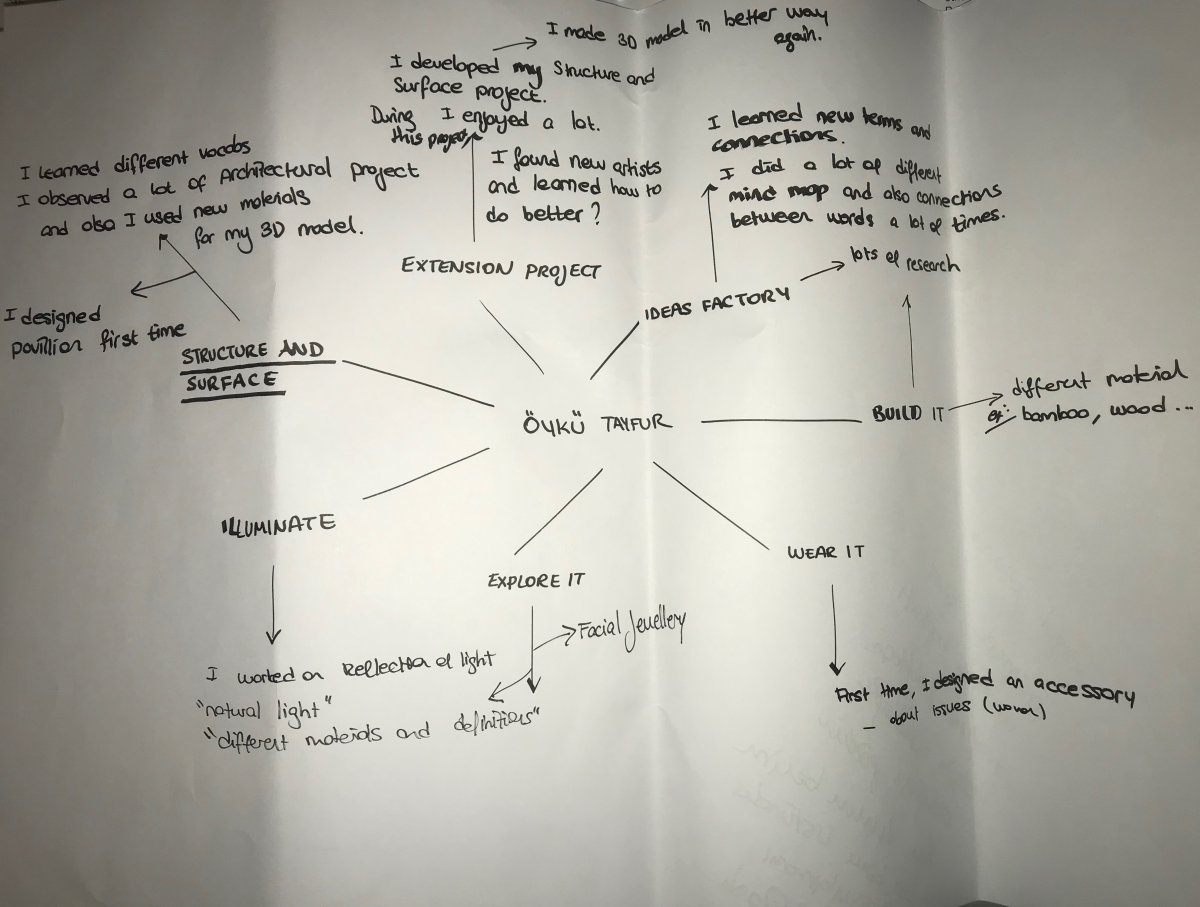 I made 3D model in better way
again.
I developed my Structure and
Surface project.
During I enjoyed a lot.
this project,
I found new artists
and learned how to
do better?
EXTENSION PROJECT
I learned new terms and
connections.
I did a lot of different
mind map and also connections
between words a lot of times.
lots of research
IDEAS FACTORY
I learned different vocabs
I observed a lot of Architectural project
and also I used new materials
for my 3D model.
I designed
pavillion first time
STRUCTURE AND
SURFACE
ÖYKÜ TAYFUR
BUILD IT
different material
bamboo, wood...
ILLUMINATE
I worked on Reflection of light
"natural light"
"different materials and definitions"
EXPLORE IT
Facial Jewellery
WEAR IT
First time, I designed an accessory
– about issues (woman)